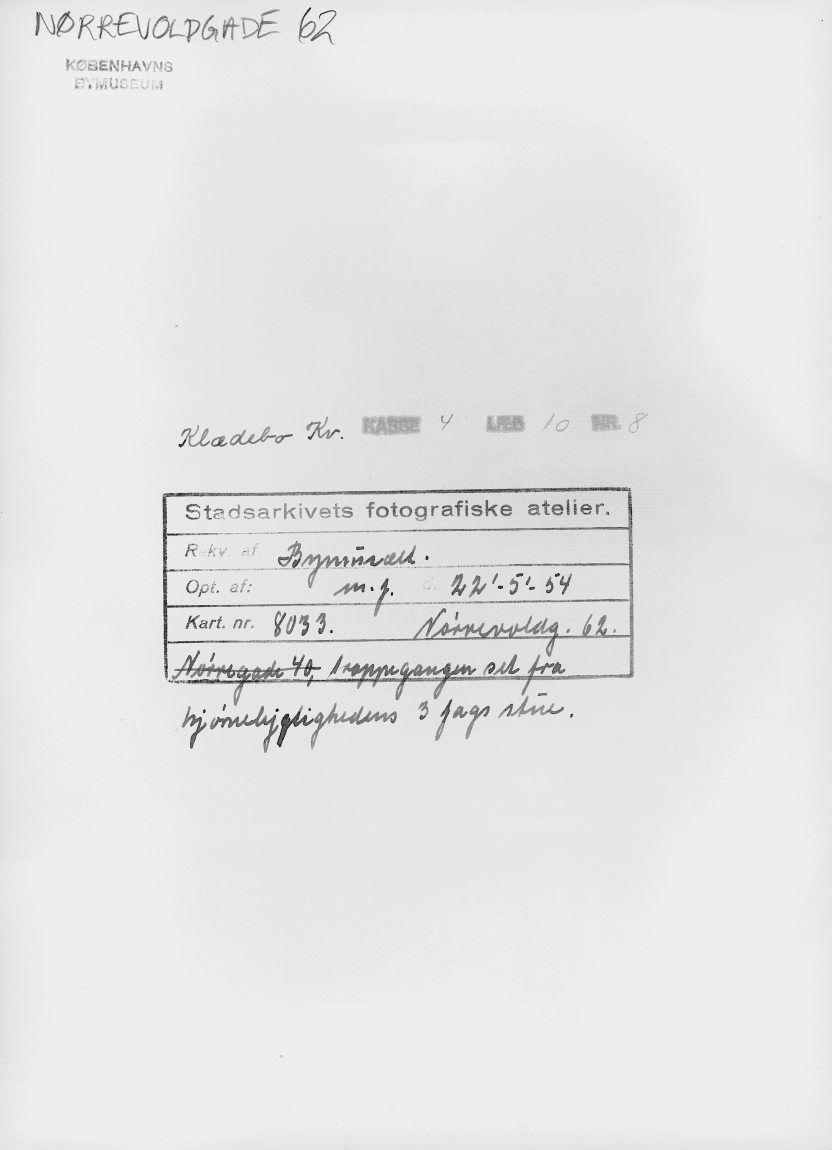 NØRREVOLDGADE 62
KØBENHAVNS
BYMUSEUM
Klædebo Kv. KASSE 4 LÆG 10 NR. 8
Stadsarkivets fotografiske atelier.
Rekv. af: Bymusæet.
Opt. af: m.f. d. 22'-5'-54
Kart. nr. 8033. Nørrevoldg. 62.
Nørregade 40, trappegangen set fra
hjørnelejlighedens 3 fags stue.